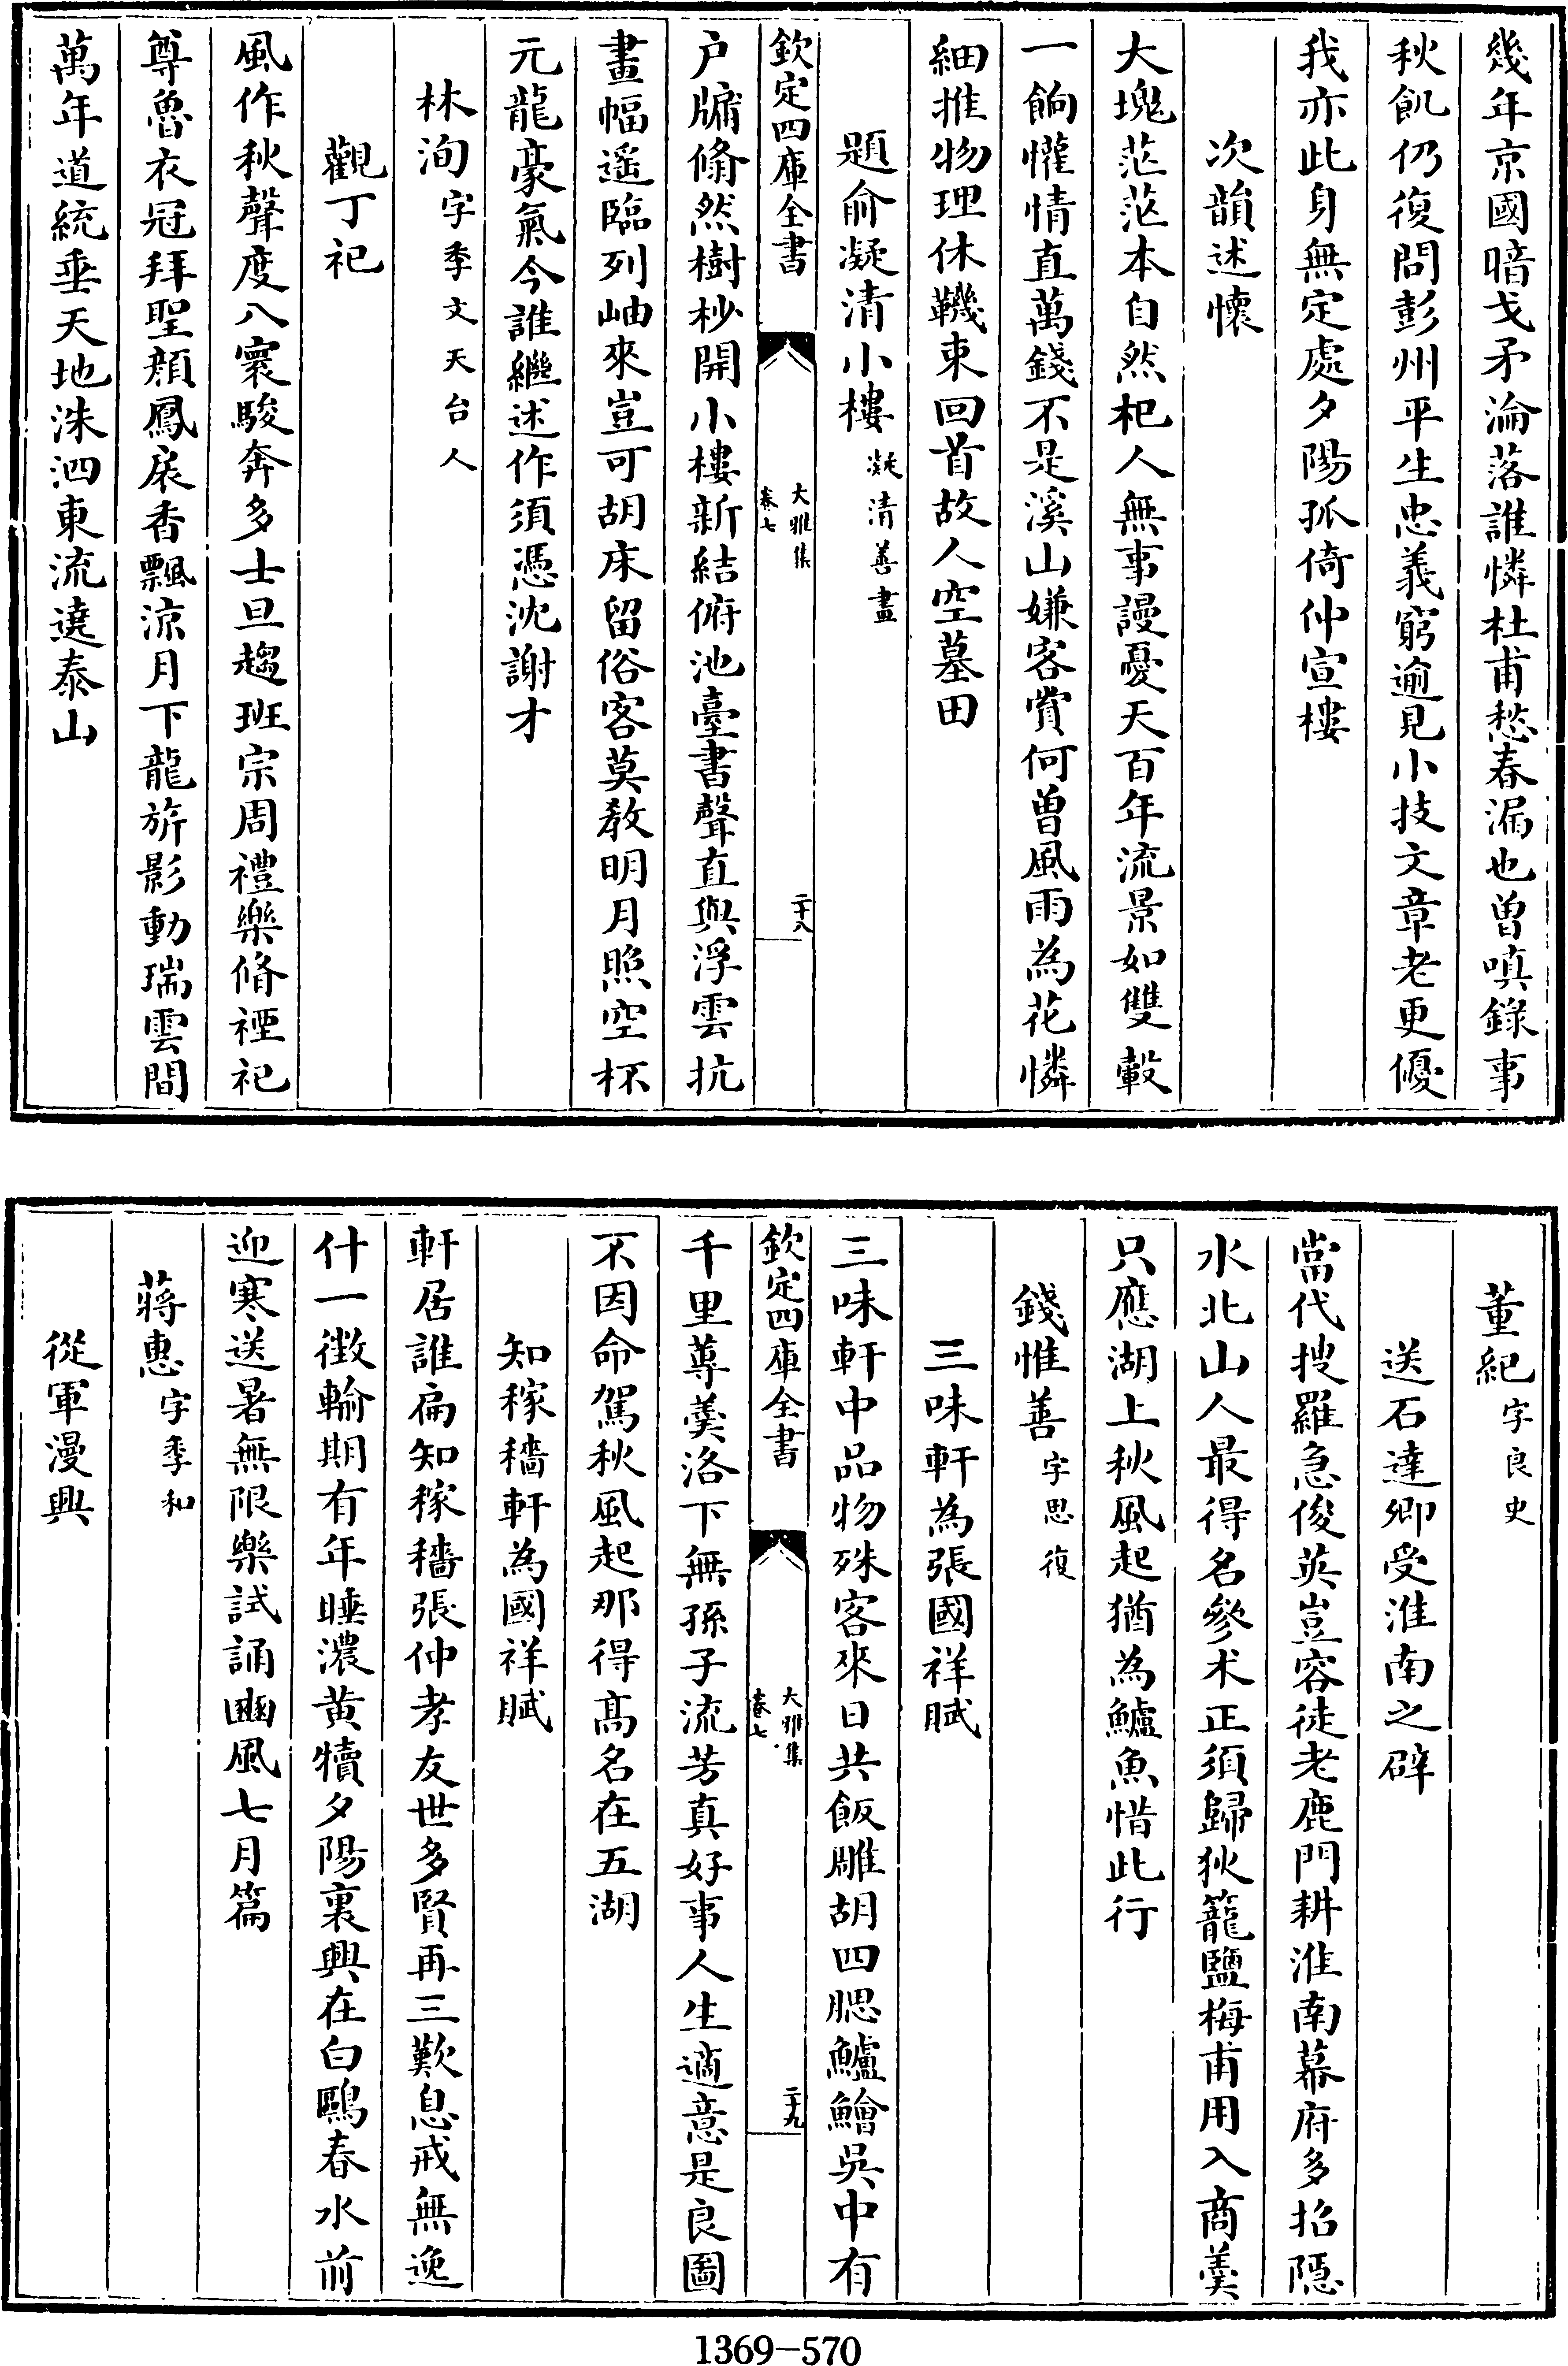 幾年京國暗戈矛淪落誰憐杜甫愁春漏也曾嗔錄事
秋飢仍復問彭州平生忠義窮逾見小技文章老更優
我亦此身無定處夕陽孤倚仲宣樓
次韻述懷
大塊茫茫本自然杞人無事謾憂天百年流景如雙轂
一餉懽情直萬錢不是溪山嫌客賞何曾風雨為花憐
細推物理休鞿束回首故人空墓田
題俞凝清小樓凝清善畫
欽定四庫全書
大雅集
卷七
二十八
户牖翛然樹杪開小樓新結俯池臺書聲直與浮雲抗
畫幅遥臨列岫來豈可胡床留俗客莫教明月照空杯
元龍豪氣今誰繼述作須憑沈謝才
林洵字季文天台人
觀丁祀
風作秋聲度八寰駿奔多士旦趨班宗周禮樂脩禋祀
尊魯衣冠拜聖顔鳳扆香飄凉月下龍旂影動瑞雲間
萬年道統垂天地洙泗東流遶泰山
董紀字良史
送石達卿受淮南之辟
當代搜羅急俊英豈容徒老鹿門耕淮南幕府多招隠
水北山人最得名參术正須歸狄籠鹽梅甫用入商羹
只應湖上秋風起猶為鱸魚惜此行
錢惟善字思復
三味軒為張國祥賦
三味軒中品物殊客來日共飯雕胡四腮鱸鱠吳中有
欽定四庫全書
大雅集
卷七
二十九
千里蓴羹洛下無孫子流芳真好事人生適意是良圖
不因命駕秋風起那得髙名在五湖
知稼穡軒為國祥賦
軒居誰扁知稼穡張仲孝友世多賢再三歎息戒無逸
什一徵輸期有年睡濃黄犢夕陽裏興在白鷗春水前
迎寒送暑無限樂試誦豳風七月篇
蔣惠字季和
從軍漫興
1369-570